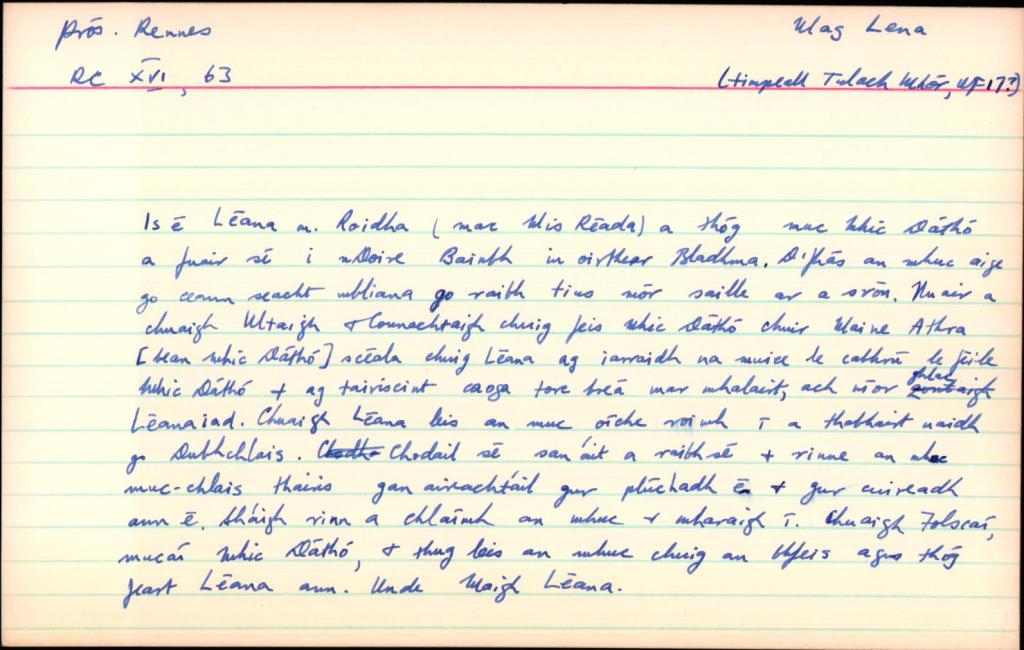 Prós. Rennes
Mag Lena
RC XVI, 63
(timpeall Tulach Mhór, UF 17?)
Is é Léana m. Roidha (mac Mis Réada) a thóg muc Mhic Dáthó
a fuair sé i nDoire Bainbh in oirthear Bladhma. D'fhás an mhuc aige
go ceann seacht mbliana go raibh tius mór saille ar a srón. Nuair a
chuaigh Ultaigh + Connachtaigh chuig feis Mhic Dáthó chuir Maine Athra
[bean Mhic Dáthó] scéala chuig Léana ag iarraidh na muice le cabhrú le féile
Mhic Dáthó + ag tairiscint caoga torc breá mar mhalairt, ach níor ghlac
Léana iad. Chuaigh Léana leis an muc oíche roimh í a thabhairt uaidh
go Dubhchlais. Chodail sé san áit a raibh sé + rinne an mhuc
muc-chlais thairis gan aireachtáil gur plúchadh é + gur cuireadh
ann é. Sháigh rinn a chlaímh an mhuc + mharaigh í. Chuaigh Folscaí,
mucaí Mhic Dáthó, + thug leis an mhuc chuig an bhfeis agus thóg
feart Léana ann. Unde Maigh Léana.